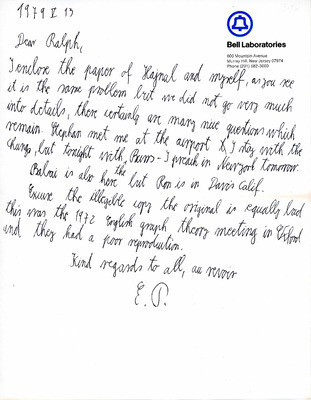 1979 V 13
Bell Laboratories
600 Mountain Avenue
Murray Hill, New Jersey 07974
Phone (201) 582-3000
Dear Ralph,
I enclose the paper of Hajnal and myself, as you see
it is the same problem but we did not go very much
into details, there certainly are many nice questions which
remain. Stephan met me at the airport & I stay with the
Chungs but tonight with the Burrs - I preach in Newyork tomorrow.
is also here but Ron is in Davis Calif.
Excuse the illegible copy the original is equally bad
this was the 1972 English graph theory meeting in Oxford
and they had a poor reproduction.
Kind regards to all, au revoir
E. P.